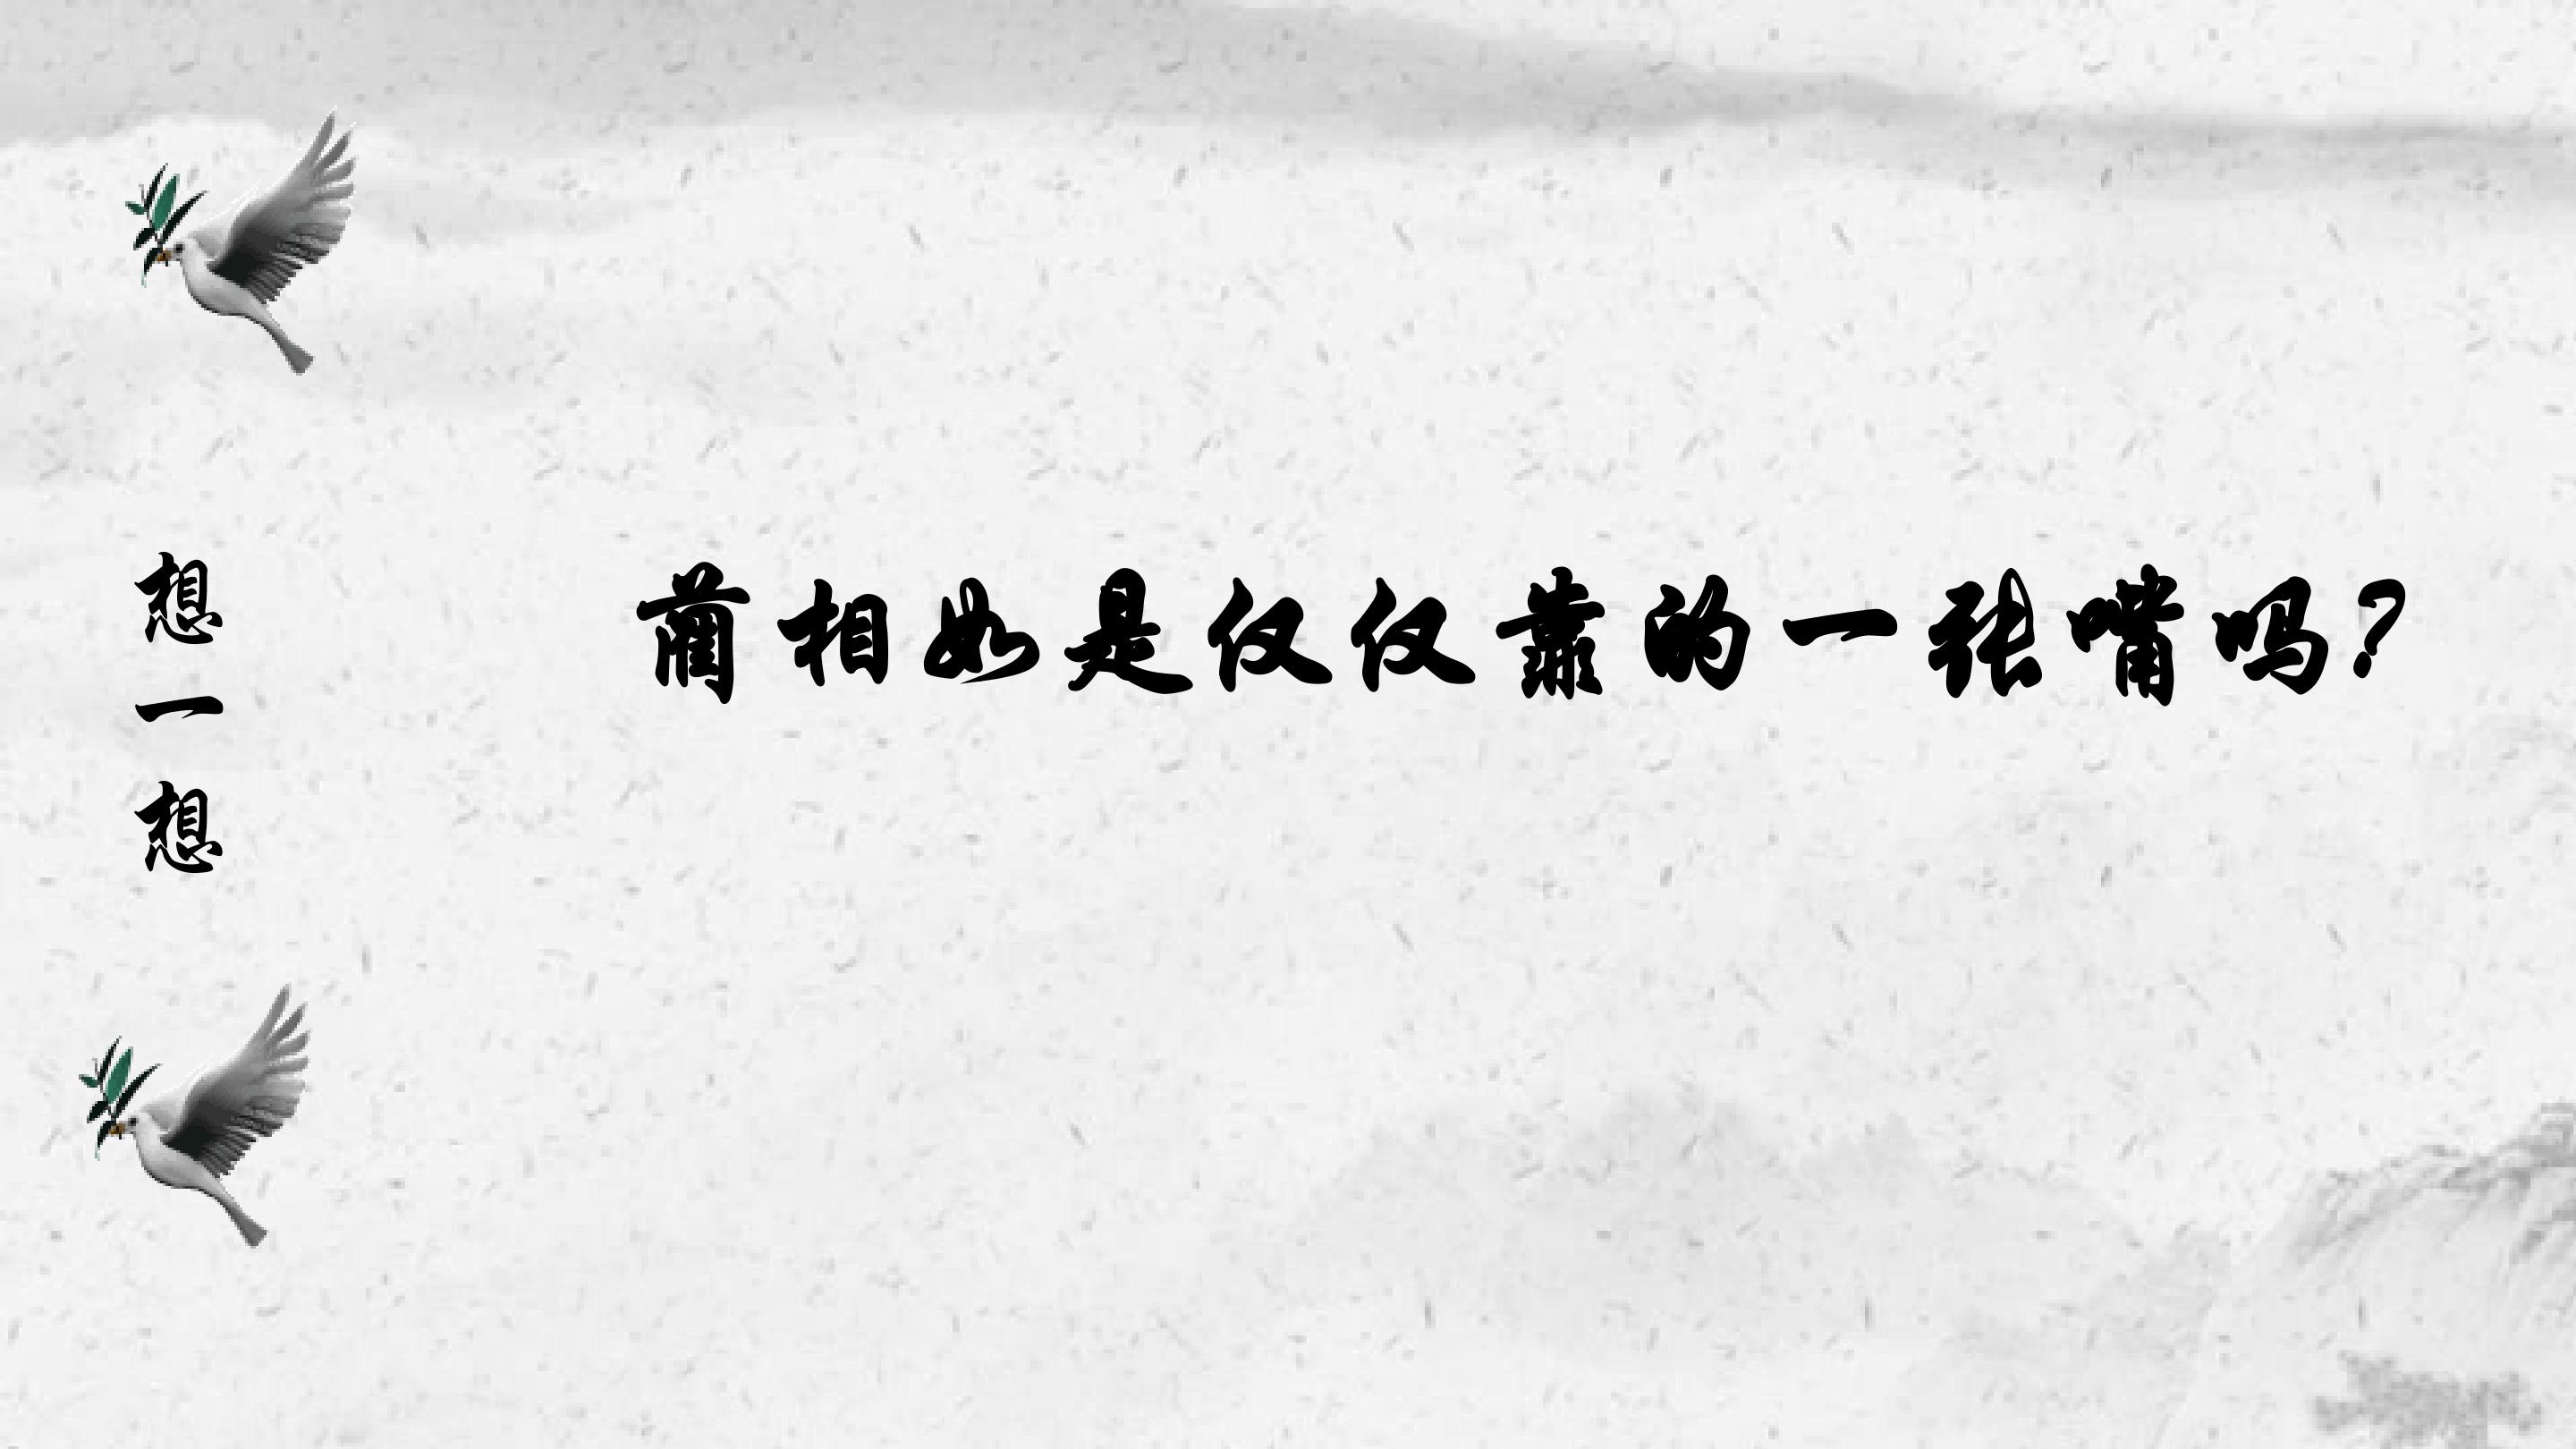 想一想
蔺相如是仅仅靠的一张嘴吗?